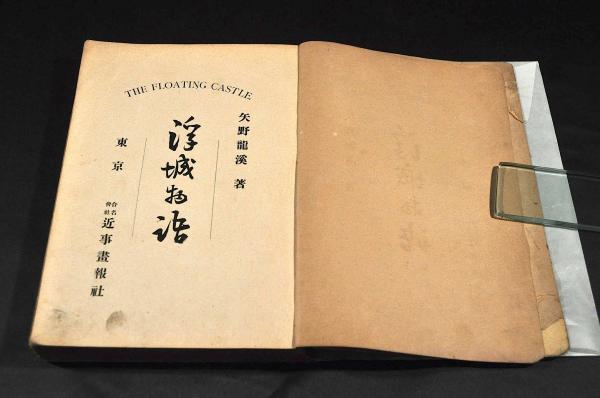 THE FLOATING CASTLE
矢野龍溪 著
浮城物語
東京
合名會社 近事畫報社